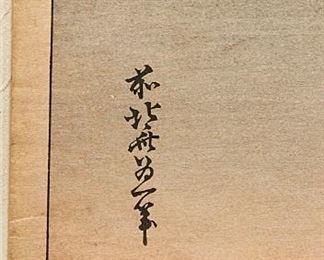 前北斎為一筆